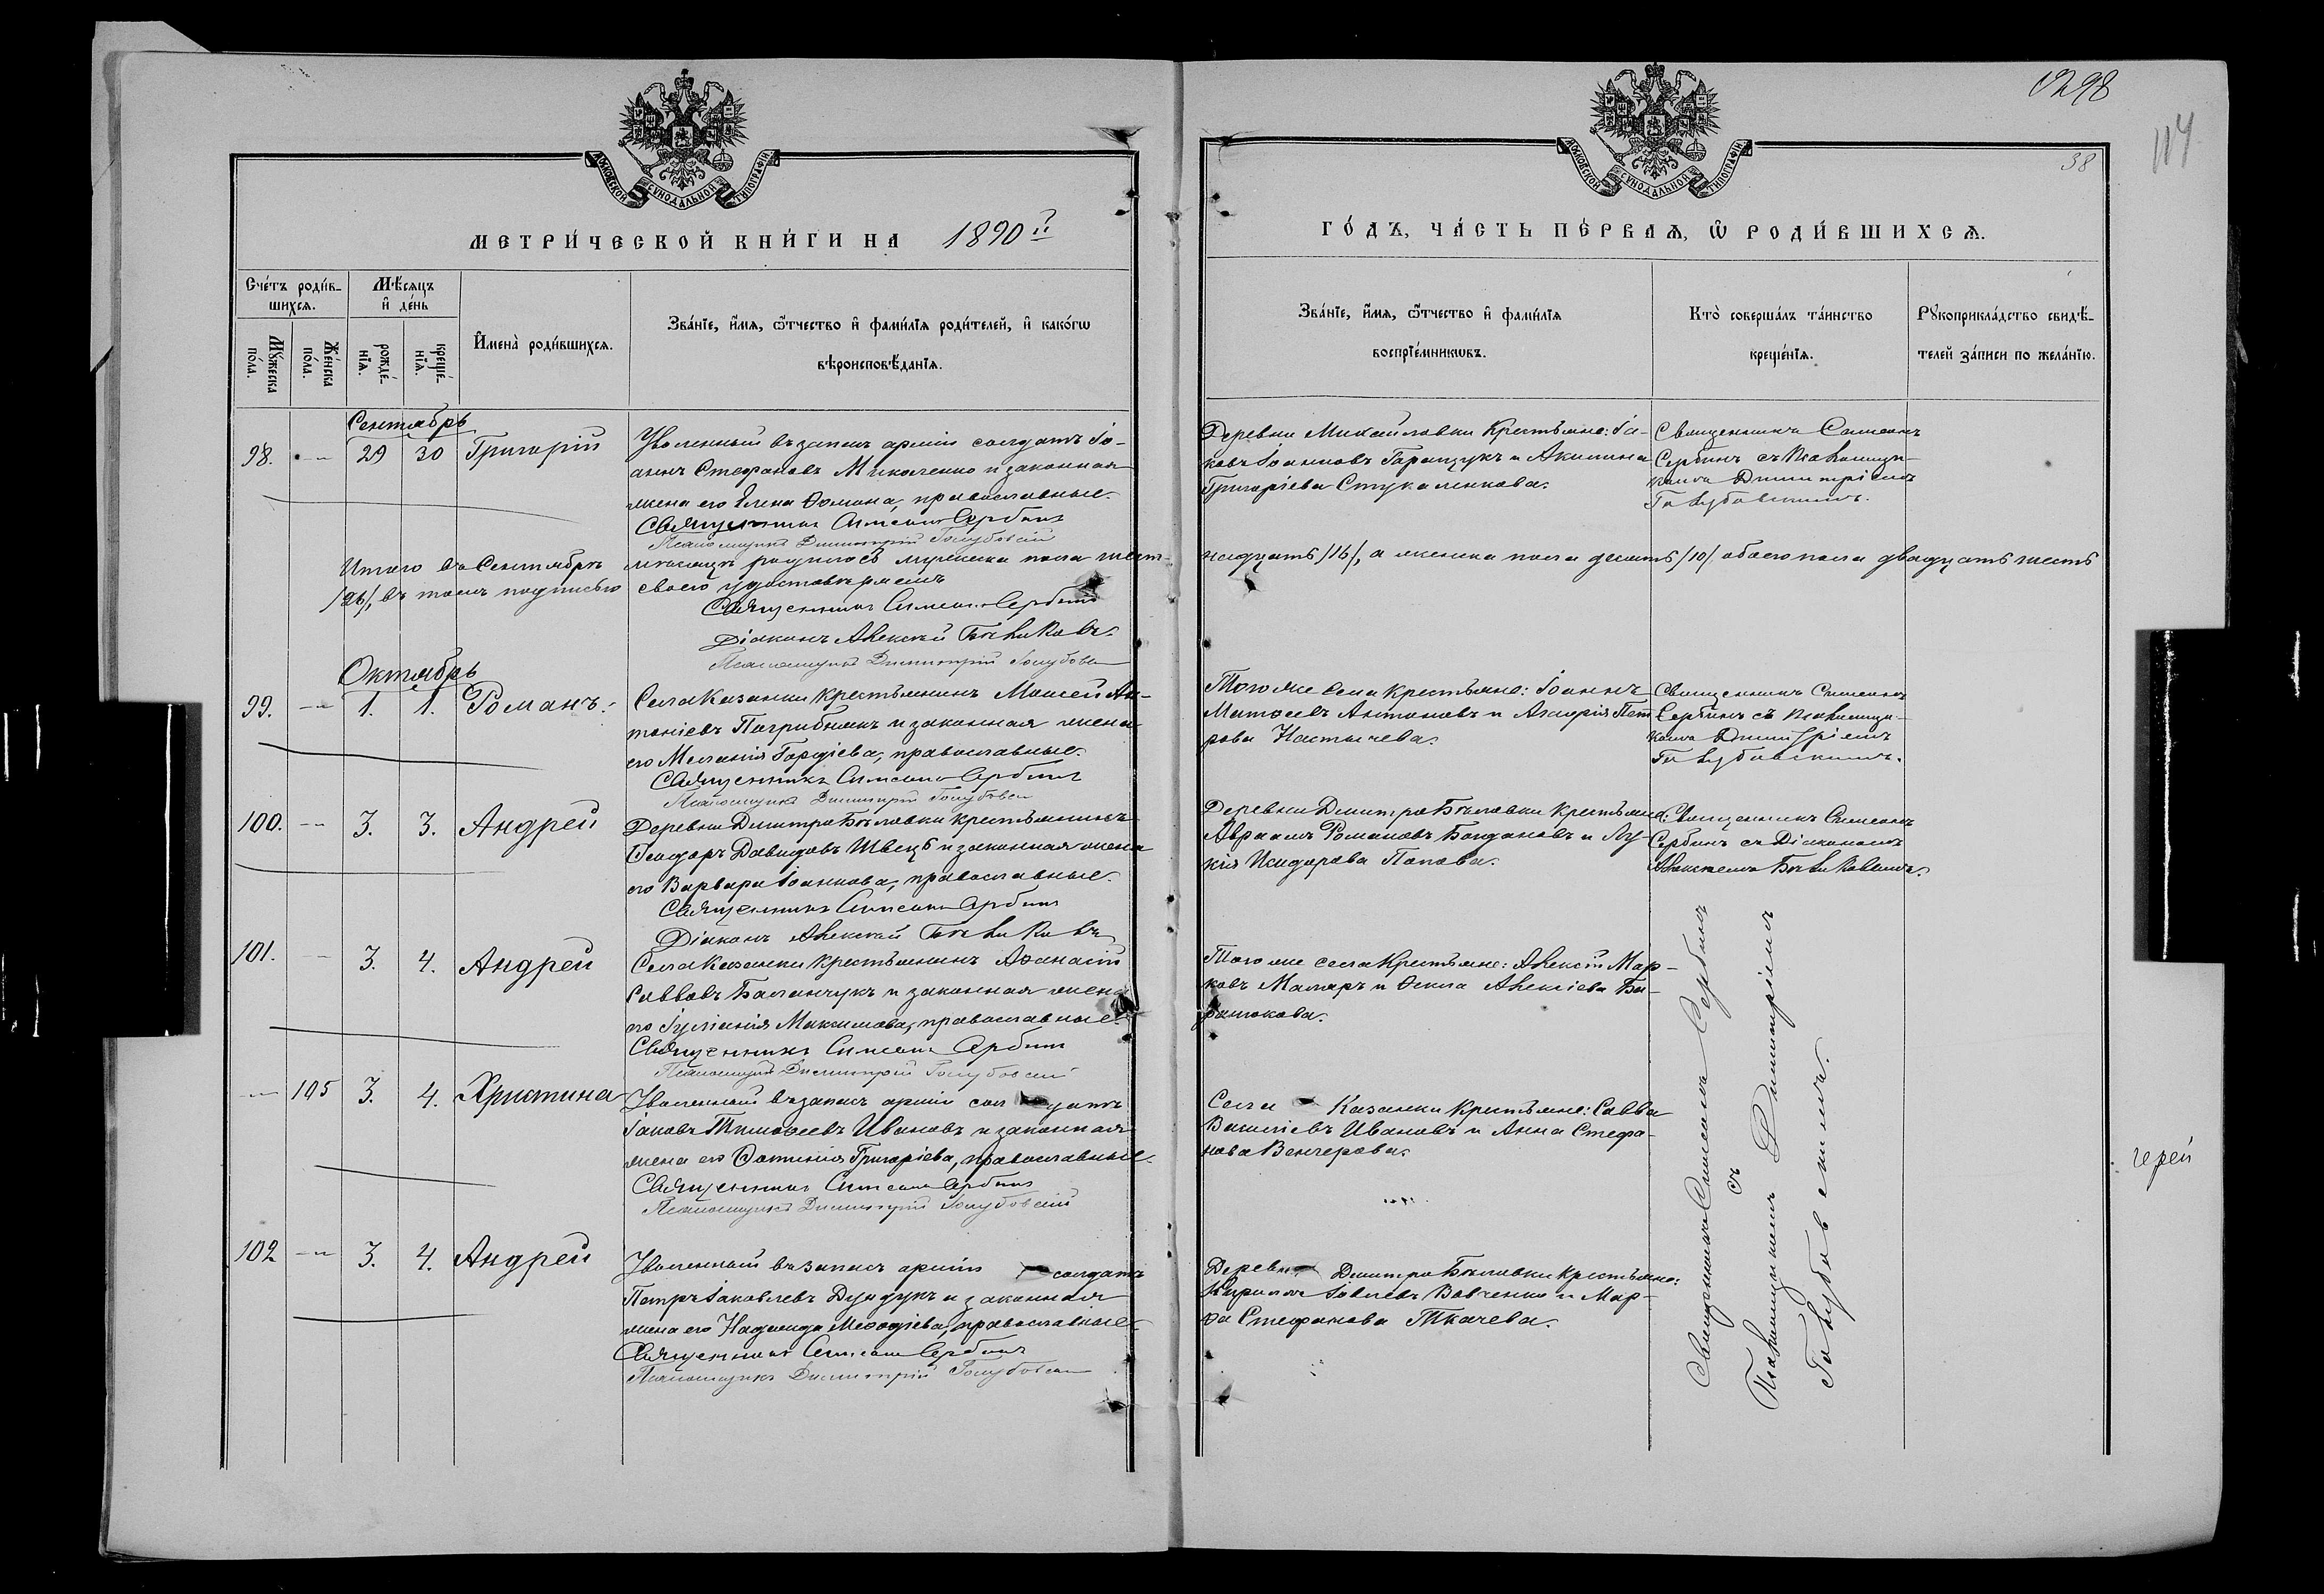 1298
114
38
МОСКОВСКОЙ СѴНОДАЛЬНОЙ ТИПОГРАФІИ
МОСКОВСКОЙ СѴНОДАЛЬНОЙ ТИПОГРАФІИ
МЕТРИ́ЧЕСКОЙ КНИ́ГИ НА 1890й
ГО́ДЪ, ЧА́СТЬ ПЕ́РВАѦ, Ѽ РОДИ́ВШИХСѦ.
Сче́тъ роди́в-
шихсѧ.
Мꙋ́жеска по́ла.
Же́нска по́ла.
Мѣ́сѧцъ
и҆ де́нь
рожде́-
нїѧ.
креще́-
нїѧ.
И҆мена̀ роди́вшихсѧ.
Зва́нїе, и҆́мѧ, ѻ҆́тчество и҆ фами́лїѧ роди́телей, и҆ како́гѡ
вѣроисповѣ́данїѧ.
Зва́нїе, и҆́мѧ, ѻ҆́тчество и҆ фами́лїѧ
воспрїе́мникѡвъ.
Кто̀ соверша́лъ та́инство
креще́нїѧ.
Рꙋкоприкла́дство свидѣ́-
телей за́писи по жела́нїю.
Сентябрь
98. -„- 29 30 Григорій
Уволенный въ запасъ арміи солдатъ Іо-
аннъ Стефановъ Миколенко и законная
жена его Елена Ѳомина, православные.
Священникъ Симеонъ Сербинъ
Псаломщикъ Димитрій Голубовскій
Деревни Михайловки Крестьяне: Іа-
ковъ Іоанновъ Горащукъ и Акилина
Григоріева Стукаленкова.
Священникъ Симеонъ
Сербинъ съ Псаломщи-
комъ Димитріемъ
Голубовскимъ.
Итого въ Сентябрѣ мѣсяцѣ родилось мужеска пола шест-
надцать /16/, а женска пола десять /10/, обоего пола двадцать шесть
/26/, въ томъ подписью своею удостовѣряемъ
Священникъ Симеонъ Сербинъ
Діаконъ Алексѣй Бѣликовъ.
Псаломщикъ Димитрій Голубовск
Октябрь
99. -„- 1. 1. Романъ.
Села Казанки Крестьянинъ Моисей Ан-
тоніевъ Погрибнякъ и законная жена
его Меланія Гордіева, православные.
Священникъ Симеонъ Сербинъ
Псаломщикъ Димитрій Голубовск
Того же села крестьяне: Іоаннъ
Матѳеевъ Антоновъ и Агафія Пет
рова Настычева.
Священникъ Симеонъ
Сербинъ съ Псаломщи-
комъ Димитріемъ
Голубовскимъ.
100. -„- 3. 3. Андрей
Деревни Дмитро Бѣловки крестьянинъ
Ѳеодоръ Давидовъ Швецъ и законная жена
его Варвара Іоаннова, православные.
Священникъ Симеонъ Сербинъ
Діаконъ Алексѣй Бѣликовъ
Деревни Дмитро Бѣловки крестьяне:
Авраамъ Романовъ Богдановъ и Лу-
кія Исидорова Попова.
Священникъ Симеонъ
Сербинъ съ Діакономъ
Алексѣемъ Бѣликовымъ.
101. — 3. 4. Андрей
Села Казанки крестьянинъ Аѳанасій
Саввовъ Баланчукъ и законная жена
его Іуліанія Максимова, православные.
Священникъ Симеонъ Сербинъ
Псаломщикъ Димитрій Голубовскій
Того же села Крестьяне: Алексѣй Мар-
ковъ Маляръ и Ѳекла Алексіева Би-
рюкова.
Священникъ Симеонъ Сербинъ
съ
Псаломщикомъ Димитріемъ
Голубовскимъ.
-„- 105 3. 4. Христина
Уволенный въ запасъ арміи солдатъ
Іаковъ Тимоѳеевъ Ивановъ и законная
жена его Фотинія Григоріева, православные.
Священникъ Симеонъ Сербинъ
Псаломщикъ Димитрій Голубовскій
Села Казанки Крестьяне: Савва
Василіевъ Ивановъ и Анна Стефа-
нова Венгерова.
102 -„- 3. 4. Андрей
Уволенный въ запасъ арміи солдатъ
Петръ Іаковлевъ Дундукъ и законная
жена его Надежда Меѳодіева, православные
Священникъ Симеонъ Сербинъ
Псаломщикъ Димитрій Голубовск
Деревни Дмитро Бѣловки крестьяне:
Кириллъ Іовлевъ Вовченко и Мар-
ѳа Стефанова Ткачева.
черей